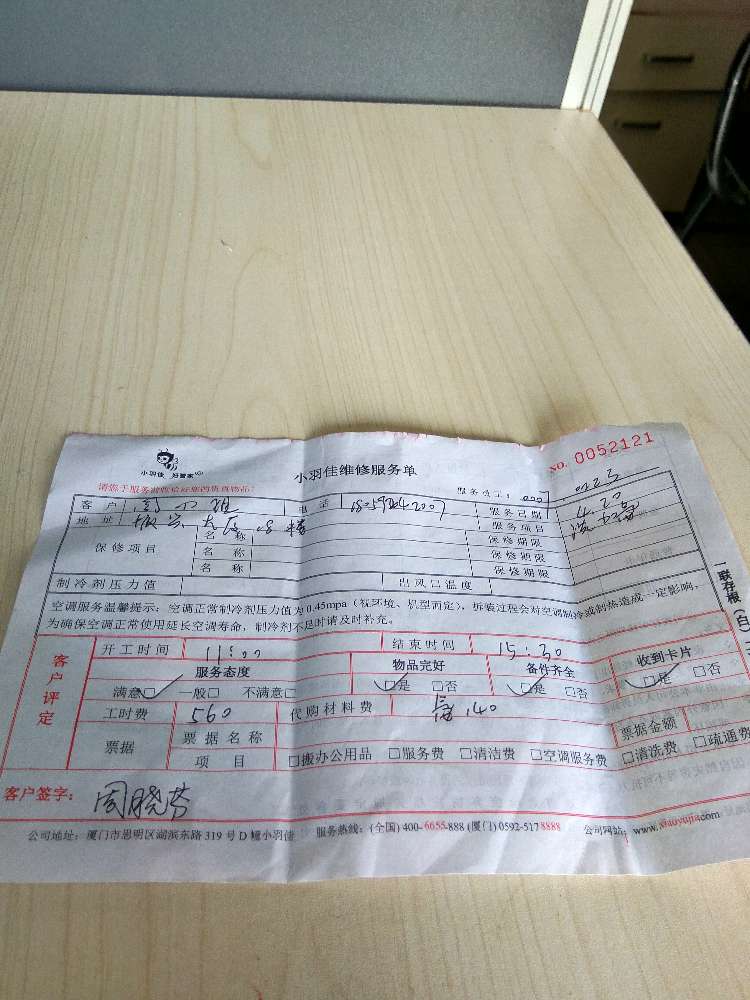 小羽佳 好管家
小羽佳维修服务单
NO. 0052121
服务员工:
客户 电话 18059242007 服务日期 4.20
地址 振兴大厦 楼 服务项目
保修项目 名称 保修期限
名称 保修期限
名称 保修期限
制冷剂压力值 出风口温度
空调服务温馨提示:空调正常制冷剂压力值为0.45mpa(视环境、机型而定),拆装过程会对空调制冷或制热造成一定影响,
为确保空调正常使用延长空调寿命,制冷剂不足时请及时补充。
一联存根(白)
客户评定
开工时间 11:00 结束时间 15:30
服务态度 物品完好 备件齐全 收到卡片
满意□ 一般□ 不满意□ □是 □否 □是 □否 □是 □否
工时费 560 代购材料费 140
票据 票据名称 票据金额
项目 □搬办公用品 □服务费 □清洁费 □空调服务费 □清洗费 □疏通费
客户签字: 周晓芬
公司地址:厦门市思明区湖滨东路319号D幢小羽佳 服务热线:(全国)400-6655-888 (厦门)0592-5178888 公司网站:www.xiaoyujia.com